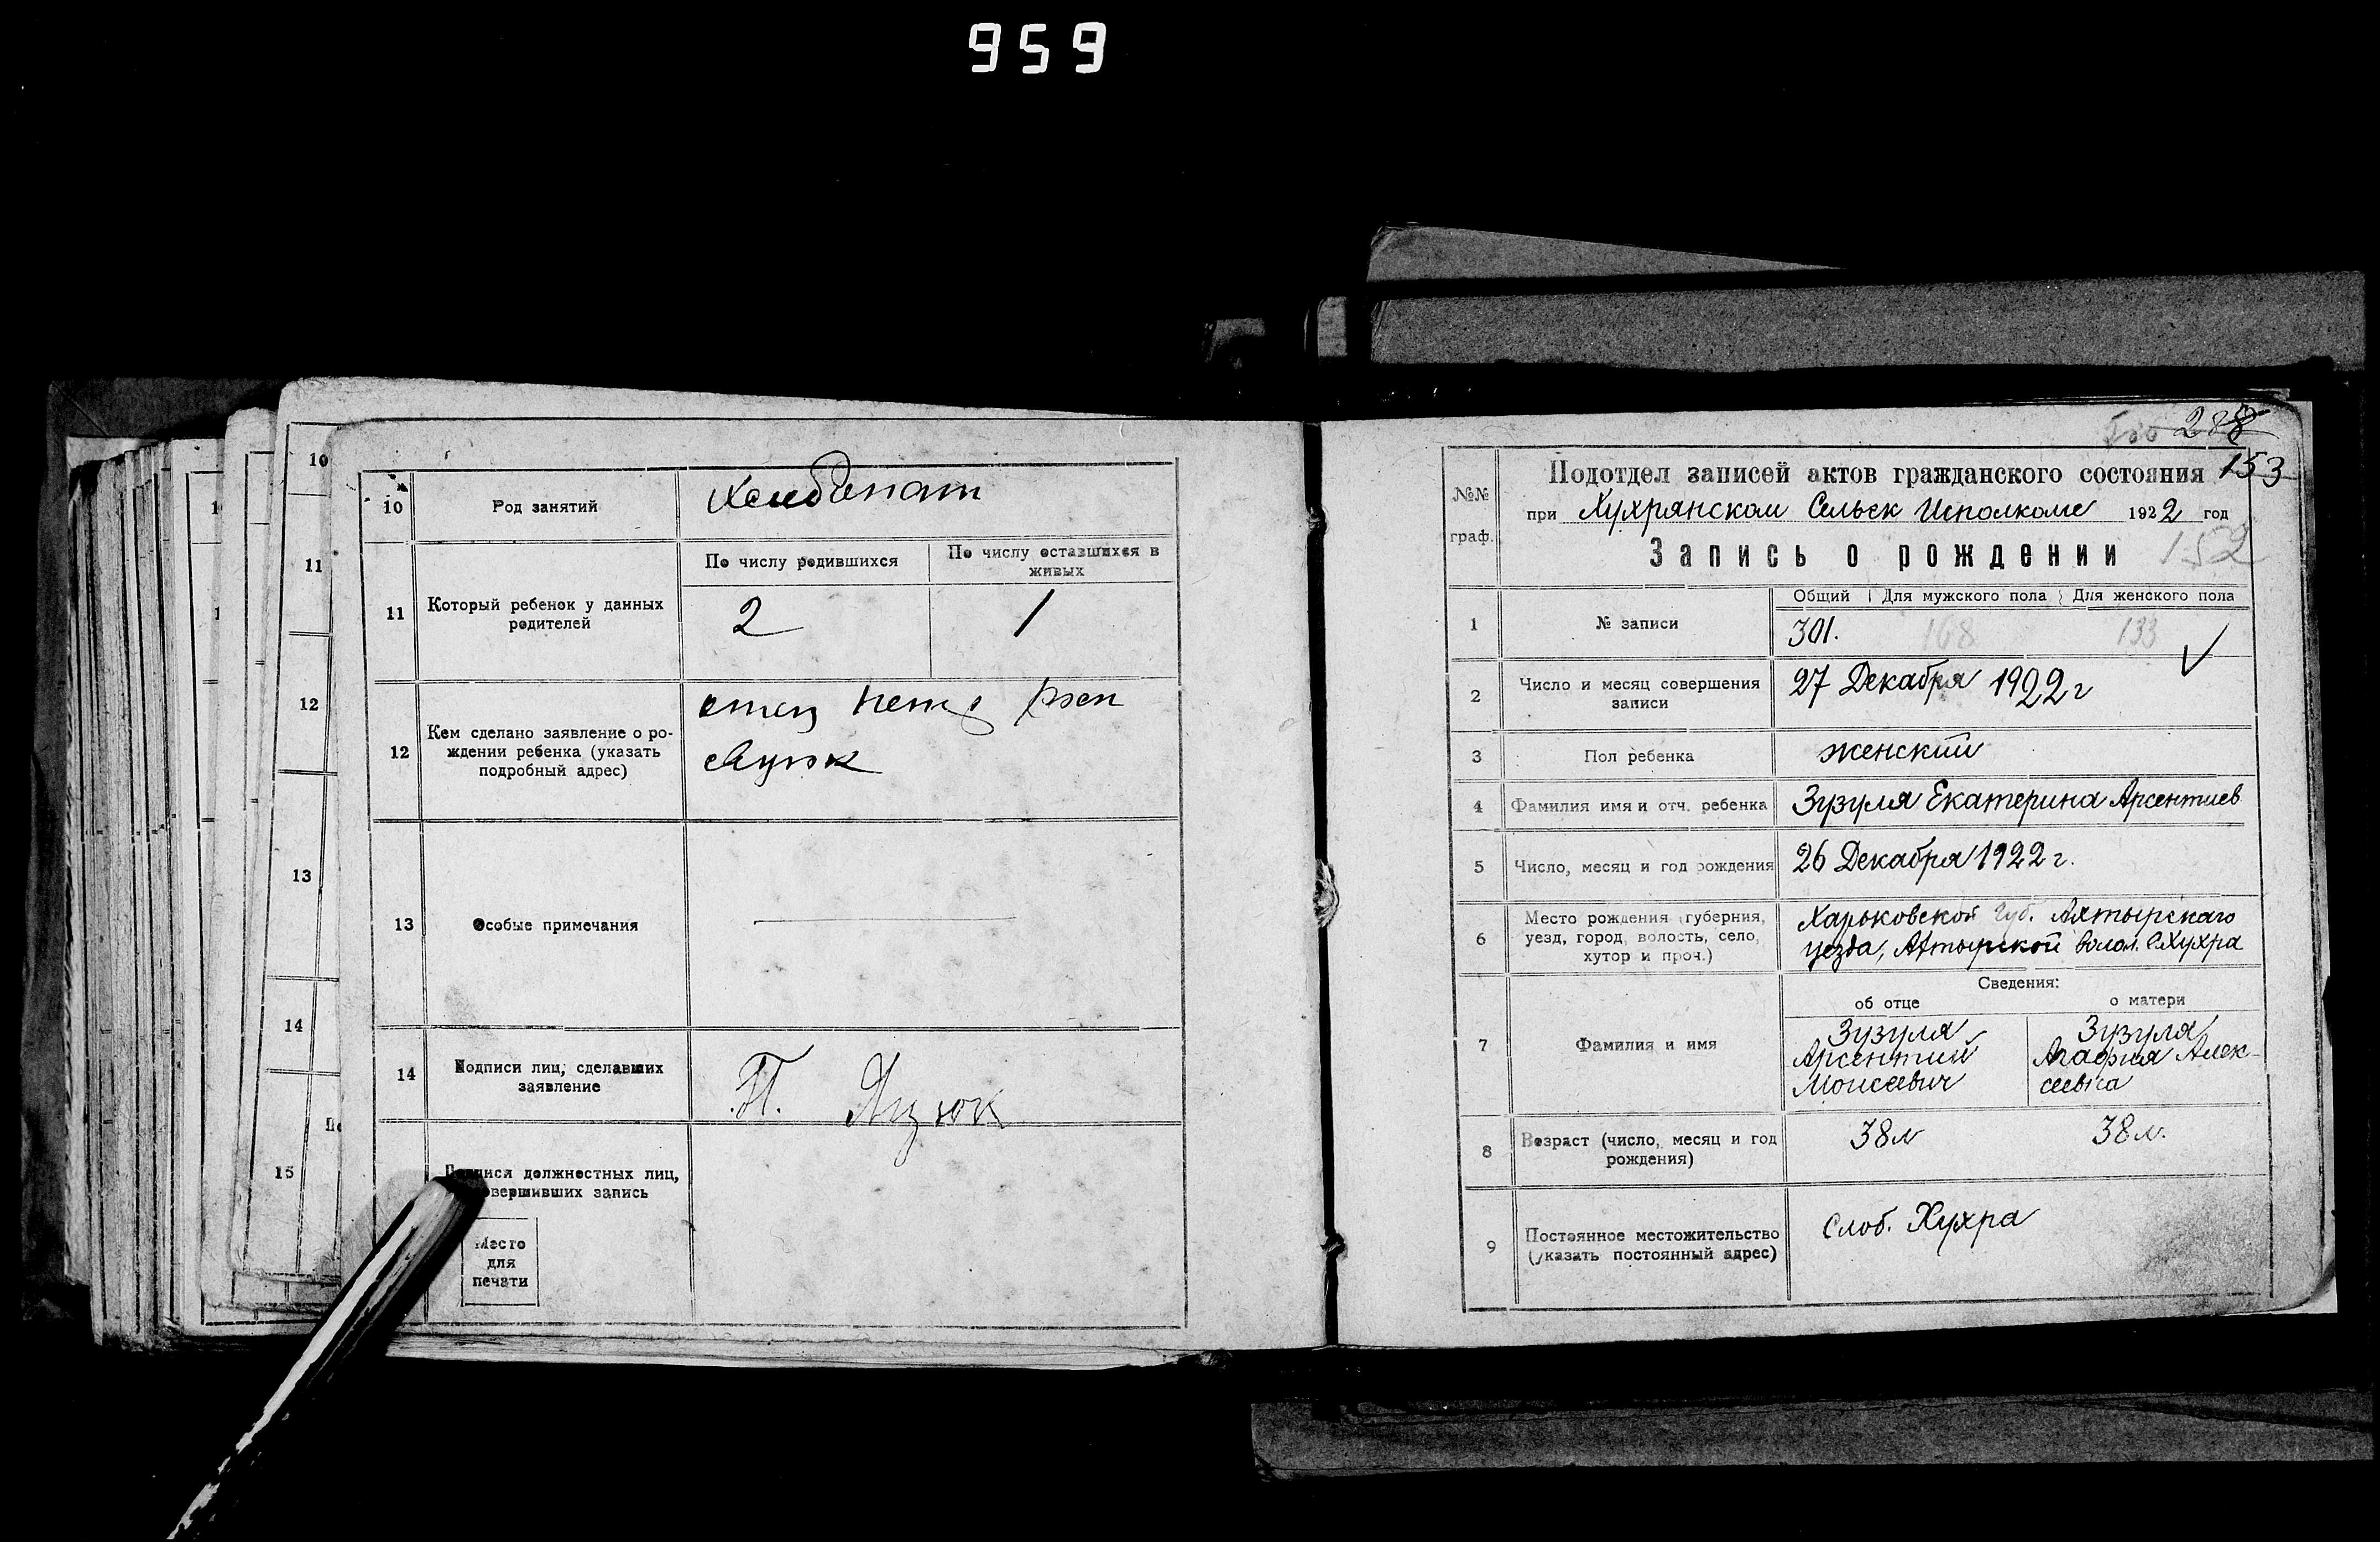 959
10
11
12
13
14
15
10
Род занятий
Хлебопаш
11
Который ребенок у данных
родителей
По числу родившихся
По числу оставшихся в
живых
2
1
12
Кем сделано заявление о ро-
ждении ребенка (указать
подробный адрес)
отец
13
Особые примечания
14
Подписи лиц, сделавших
заявление
П. Яцюк
Подписи должностных лиц,
совершивших запись
Место
для
печати
288
153
№№
граф.
Подотдел записей актов гражданского состояния
при Хухрянском Сельск Исполкоме 1922 год
Запись о рождении
152
1
№ записи
Общий Для мужского пола Для женского пола
301. 168 133
2
Число и месяц совершения
записи
27 Декабря 1922 г
3
Пол ребенка
женский
4
Фамилия имя и отч. ребенка
Зузуля Екатерина Арсентиев
5
Число, месяц и год рождения
26 Декабря 1922 г.
6
Место рождения (губерния,
уезд, город, волость, село,
хутор и проч.)
Харьковской Губ. Ахтырскаго
уезда, Ахтырской волол. с Хухра
7
Фамилия и имя
Сведения:
об отце
о матери
Зузуля
Арсентий
Моисеевич
Зузуля
Агафия Алек-
сеевна
8
Возраст (число, месяц и год
рождения)
38 л
38 л.
9
Постоянное местожительство
(указать постоянный адрес)
Слоб. Хухра